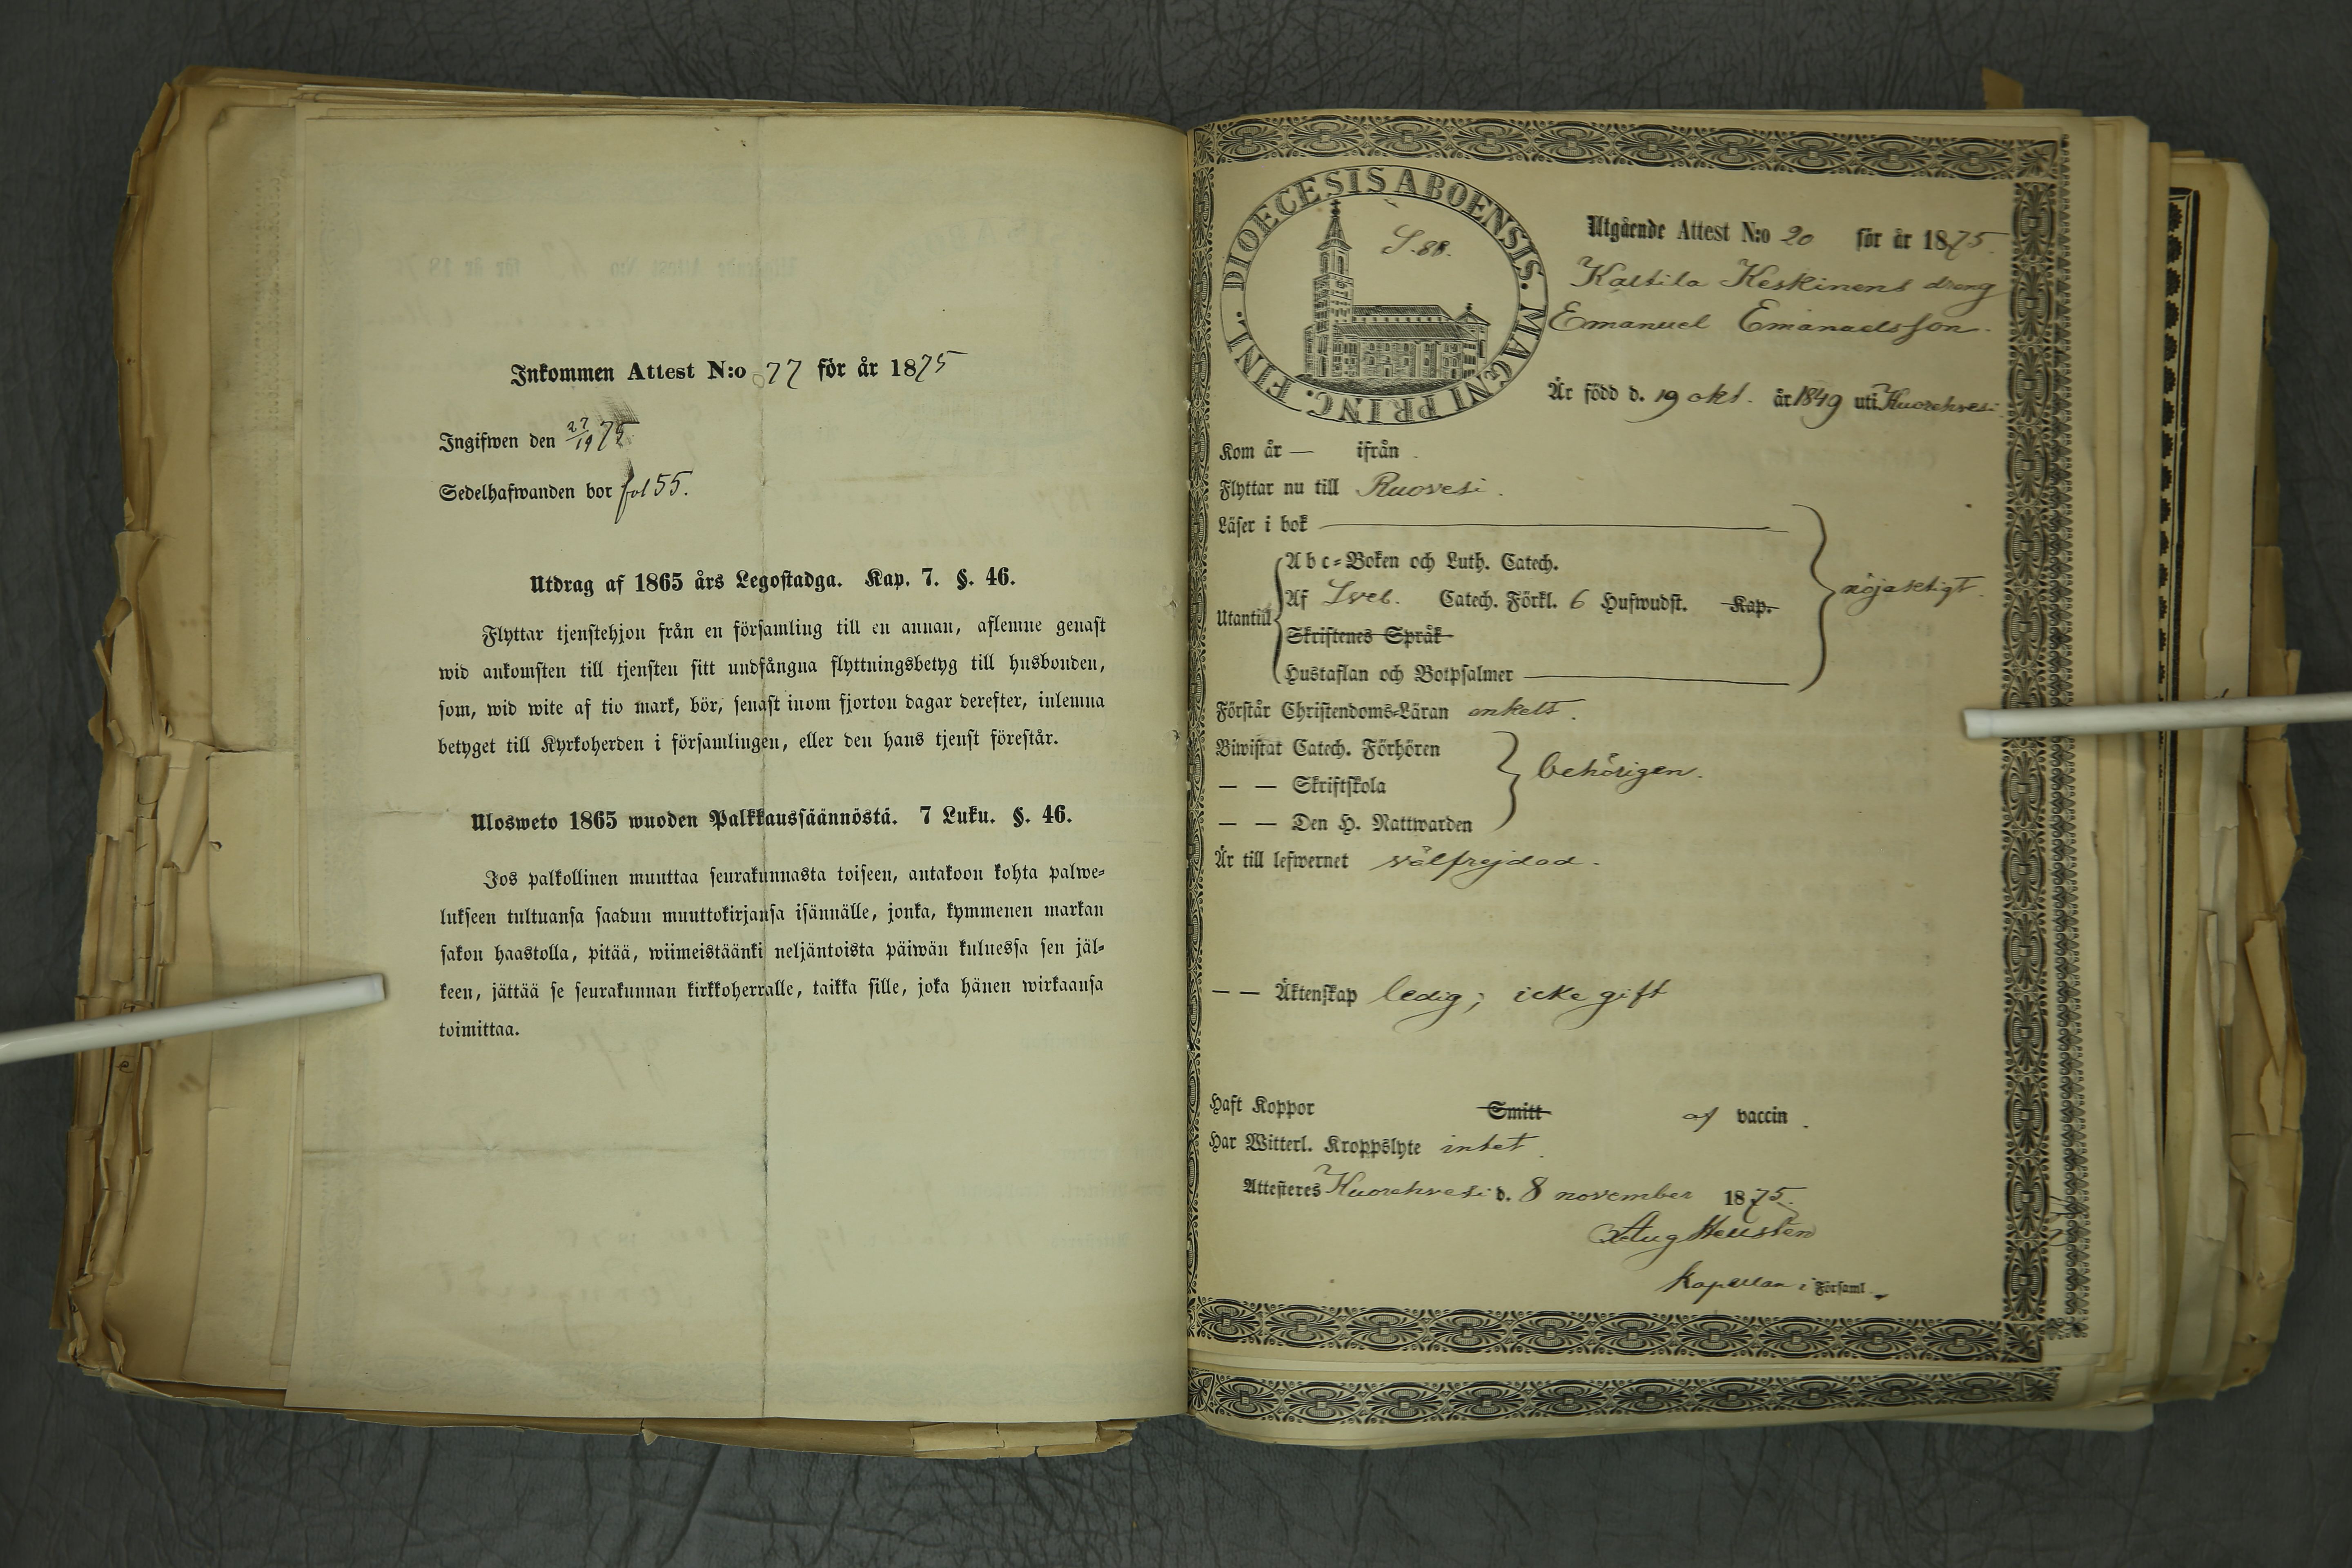 Inkommen Attest N:o 77 för år 1875
Ingifwen den 27/19 75
Sedelhafwanden bor fol 55.
Utdrag af 1865 års Legostadga. Kap. 7. §. 46.
Flyttar tjenstehjon från en församling till en annan, aflemne genast
wid ankomsten till tjensten sitt undfångna flyttningsbetyg till husbonden,
som, wid wite af tio mark, bör, senast inom fjorton dagar derefter, inlemna
betyget till Kyrkoherden i församlingen, eller den hans tjenst förestår.
Ulosweto 1865 wuoden Palkkaussäännöstä. 7 Luku. §. 46.
Jos palkollinen muuttaa seurakunnasta toiseen, antakoon kohta palwe-
lukseen tultuansa saadun muuttokirjansa isännälle, jonka, kymmenen markan
sakon haastolla, pitää, wiimeistäänki neljäntoista päiwän kuluessa sen jäl-
keen, jättää se seurakunnan kirkkoherralle, taikka sille, joka hänen wirkaansa
toimittaa.
DIOECESIS ABOENSIS. MAGNI PRINC. FINL.
S. 88.
Utgående Attest N:o 20 för år 1875.
Kaltila Keskinens dreng
Emanuel Emanuelsson.
Är född d. 19 okt. år 1849 uti Kuorehvesi
Kom år — ifrån
Flyttar nu till Ruovesi.
Läser i bok
Utantill
Abc-Boken och Luth. Catech.
Af Sveb. Catech. Förkl. 6 Hufwudst. Kap.
Skriftenes Språk
Hustaflan och Botpsalmer
nöjaktigt.
Förstår Christendoms-Läran enkelt.
Biwistat Catech. Förhören
— — Skriftskola
— — Den H. Nattwarden
behörigen.
Är till lefwernet välfrejdad.
— — Äktenskap ledig; icke gift
Haft Koppor Smitt af vaccin.
Har Witterl. Kroppslyte intet.
Attesteres Kuorehvesi d. 8 november 1875.
Aug Hellsten
Kapellan i Församl.